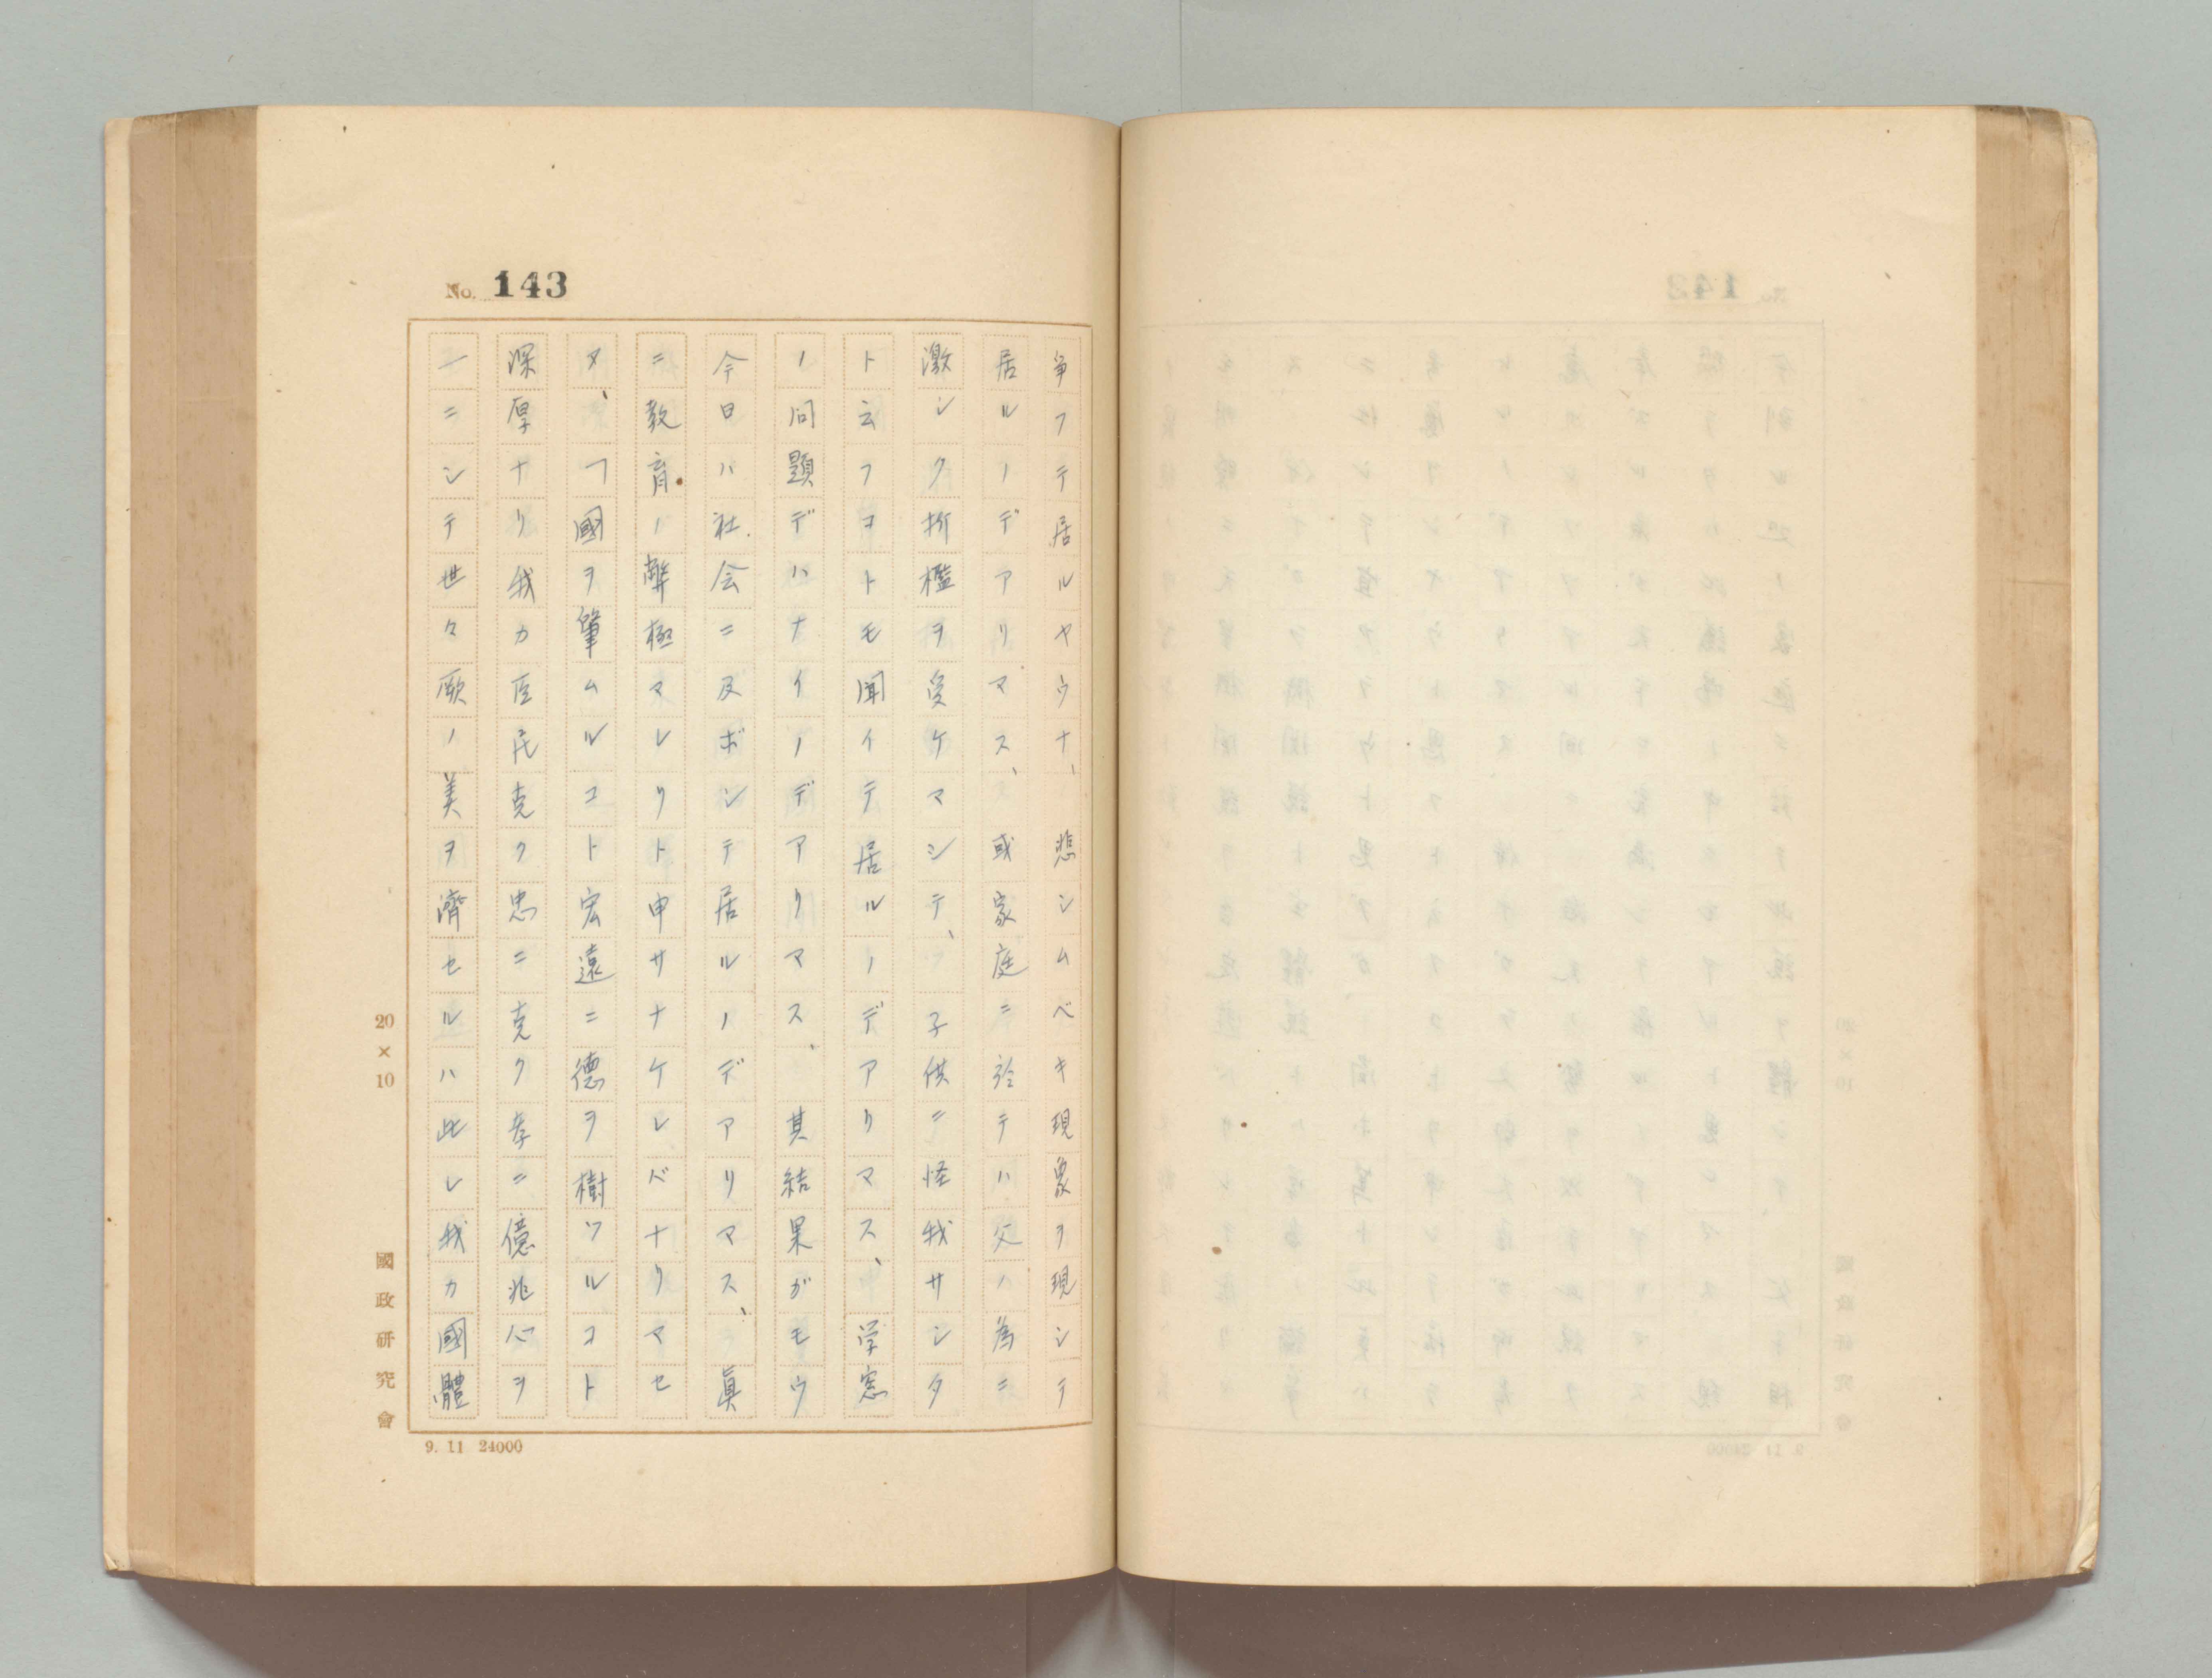 No. 143
争フテ居ルヤウナ、悲シムベキ現象ヲ現シテ
居ルノデアリマス、或家庭ニ於テハ父ハ為ニ
激シク折檻ヲ受ケマシテ、子供ニ怪我サシタ
ト云フヿトモ聞イテ居ルノデアリマス、学窓
ノ問題デハナイノデアリマス、其結果ガモウ
今日ハ社会ニ及ボシテ居ルノデアリマス、眞
ニ教育ノ弊極マレリト申サナケレバナリマセ
ヌ、「國ヲ肇ムルコト宏遠ニ德ヲ樹ツルコト
深厚ナリ我カ臣民克ク忠ニ克ク孝ニ億兆心ヲ
一ニシテ世々厥ノ美ヲ濟セルハ此レ我カ國體
20×10
國政研究會
9. 11 24000